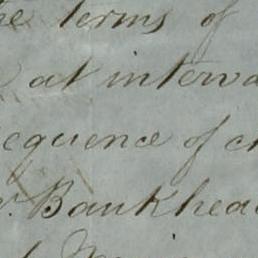 the terms of
at interva
equence of c
r. Bankhea